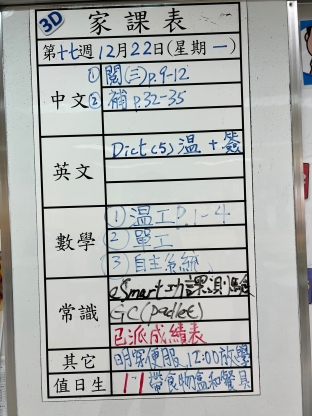 3D
家課表
第十七週 12月22日(星期一)
中文 ① 閱(三) p.9-12
② 補 p.32-35
英文 Dict(5) 溫 + 簽
數學 ① 溫工 P.1-4
② 單工
③ 自主系統
常識 eSmart 功課
GC (Padlet)
已派成績表
其它 明穿便服, 12:00放學
值日生 1-1 帶食物盒和餐具